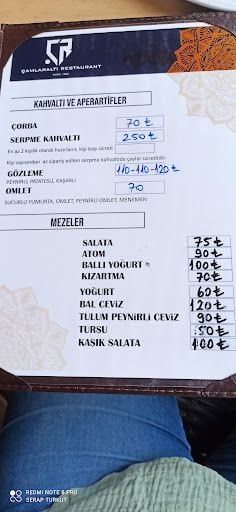 ÇAMLARALTI RESTAURANT
KAHVALTI VE APERARTİFLER
ÇORBA 70 ₺
SERPME KAHVALTI 250 ₺
En az 2 kişilik olarak hazırlanır, kişi başı ücreti
Kişi sayısından az sipariş edilen serpme kahvaltıda çaylar ücretlidir.
GÖZLEME 110-110-120 ₺
PEYNİRLİ, PATATESLİ, KAŞARLI
OMLET 70
SUCUKLU YUMURTA, OMLET, PEYNİRLİ OMLET, MENEMEN
MEZELER
SALATA 75 ₺
ATOM 90 ₺
BALLI YOĞURT 100 ₺
KIZARTMA 70 ₺
YOĞURT 60 ₺
BAL CEVİZ 120 ₺
TULUM PEYNİRLİ CEVİZ 90 ₺
TURŞU 50 ₺
KAŞIK SALATA 100 ₺
REDMI NOTE 8 PRO
SERAP TURKUT